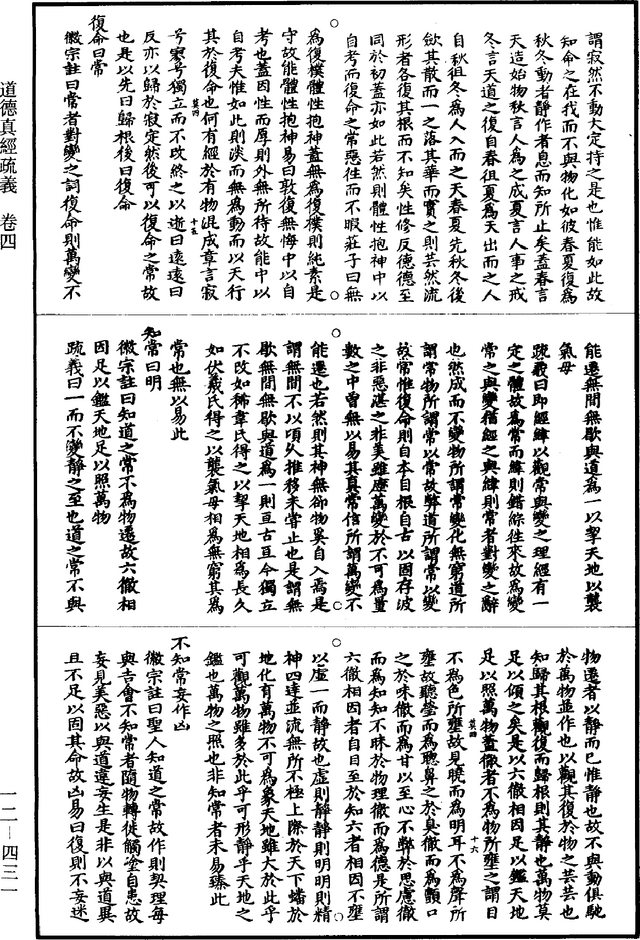 謂寂然不動大定持之是也惟能如此故
知命之在我而不與物化如彼春夏復為
秋冬動者靜作者息而知所止矣蓋春言
天造始物秋言人為之成夏言人事之戒
冬言天道之復自春徂夏為天出而之人
自秋徂冬為人入而之天春夏先秋冬後
斂其散而一之落其華而實之則芸然流
形者各復其根而不知矣性修反德德至
同於初蓋亦如此若然則體性抱神中以
自考而復命之常惡往而不暇莊子曰無
為復樸體性抱神蓋無為復樸則純素是
守故能體性抱神易曰敦復無悔中以自
考也蓋因性而厚則外無所待故能中以
自考夫惟如此則淡而無為動而以天行
其於復命也何有經於有物混成章言寂
兮寥兮獨立而不改終之以逝曰遠遠曰
反亦以歸於寂定然後可以復命之常故
也是以先曰歸根後曰復命
復命曰常
徽宗註曰常者對變之詞復命則萬變不
能遷無間無歇與道為一以挈天地以襲
氣母
疏義曰即經緯以觀常與變之理經有一
定之體故為常而緯則錯綜往來故為變
常之與變猶經之與緯則常者對變之辭
也然成而不變物所謂常變化無窮道所
謂常物所謂常以常故弊道所謂常以變
故常惟復命則自本自根自古以固存波
之非惡湛之非美雖歷萬變於不可為量
數之中曾無以易其真常信所謂萬變不
能遷也若然則其神無郤物奚自入焉是
謂無間不以頃久推移未嘗止也是謂無
歇無間無歇與道為一則亙古亙今獨立
不改如狶韋氏得之以挈天地相為長久
如伏羲氏得之以襲氣母相為無窮其為
常也無以易此
知常曰明
徽宗註曰知道之常不為物遷故六徹相
因足以鑑天地足以照萬物
疏義曰一而不變靜之至也道之常不與
物遷者以靜而已惟靜也故不與動俱馳
於萬物並作也以觀其復於物之芸芸也
知歸其根觀復而歸根則其靜也萬物莫
足以傾之矣是以六徹相因足以鑑天地
足以照萬物蓋徹者不為物所壅之謂目
不為色所壅故見曉而為明耳不為聲所
壅故聽瑩而為聰鼻之於臭徹而為顫口
之於味徹而為甘以至心不弊於思慮徹
而為知知不昧於物理徹而為德是所謂
六徹相因者自目至於知六者相因不壅
以虛一而靜故也虛則靜靜則明明則精
神四達並流無所不極上際於天下蟠於
地化育萬物不可為象天地雖大於此乎
可觀萬物雖多於此乎可形靜乎天地之
鑑也萬物之照也非知常者未易臻此
不知常妄作凶
徽宗註曰聖人知道之常故作則契理每
與吉會不知常者隨物轉徙觸塗自患故
妄見美惡以與道違妄生是非以與道異
且不足以固其命故凶易曰復則不妄迷
道德真經疏義　卷四
一二—四三一